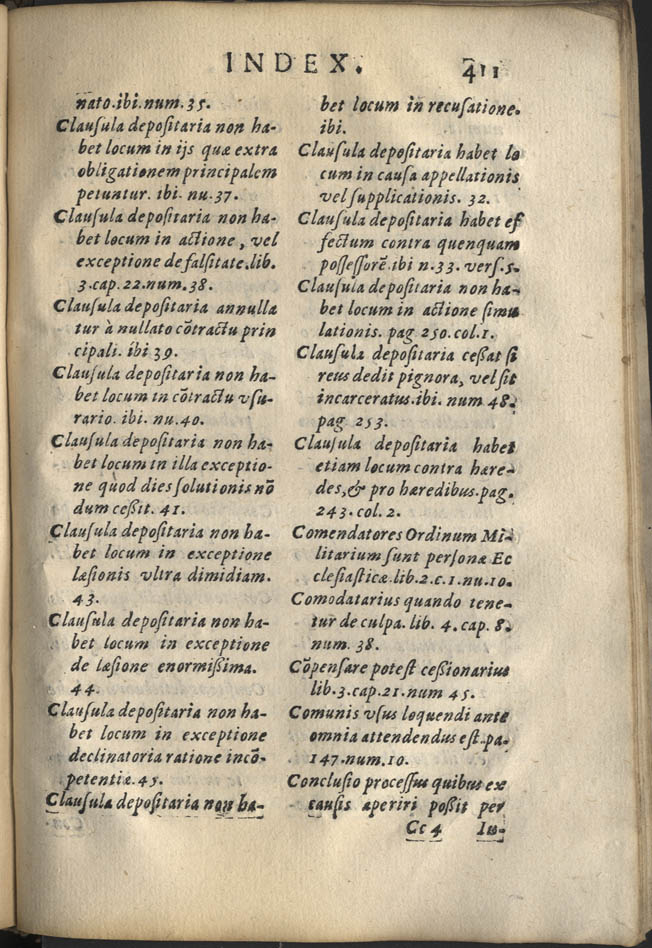 INDEX.
411
nato.ibi.num.35.
Clauſula depoſitaria non ha-
bet locum in ijs quæ extra
obligationem principalem
petuntur. ibi. nu.37.
Clauſula depoſitaria non ha-
bet locum in actione, vel
exceptione de falſitate.lib.
3.cap.22.num.38.
Clauſula depoſitaria annulla
tur à nullato cōtractu prin
cipali. ibi 39.
Clauſula depoſitaria non ha-
bet locum in cōtractu vſu-
rario. ibi. nu.40.
Clauſula depoſitaria non ha-
bet locum in illa exceptio-
ne quòd dies ſolutionis nō
dum ceßit. 41.
Clauſula depoſitaria non ha-
bet locum in exceptione
læſionis vltra dimidiam.
43.
Clauſula depoſitaria non ha-
bet locum in exceptione
de læſione enormißima.
44.
Clauſula depoſitaria non ha-
bet locum in exceptione
declinatoria ratione incō-
petentiæ.45.
Clauſula depoſitaria non ha-
bet locum in recuſatione.
ibi.
Clauſula depoſitaria habet lo
cum in cauſa appellationis
vel ſupplicationis. 32.
Clauſula depoſitaria habet ef
fectum contra quenquam
poſſeſſorē.ibi n.33. verſ.5.
Clauſula depoſitaria non ha-
bet locum in actione ſimu
lationis. pag 250.col.1.
Clauſula depoſitaria ceßat ſi
reus dedit pignora, vel ſit
incarceratus.ibi. num 48.
pag 253.
Clauſula depoſitaria habet
etiam locum contra hære-
des,& pro hæredibus.pag.
243.col. 2.
Comendatores Ordinum Mi-
litarium ſunt perſonæ Ec
cleſiaſticæ.lib.2.c.1.nu.10.
Comodatarius quando tene-
tur de culpa. lib. 4. cap. 8.
num. 38.
Cōpenſare poteſt ceßionarius
lib.3.cap.21.num 45.
Comunis vſus loquendi ante
omnia attendendus eſt.pa.
147.num.10.
Concluſio proceſſus quibus ex
cauſis aperiri poßit per
Cc 4
Iu-